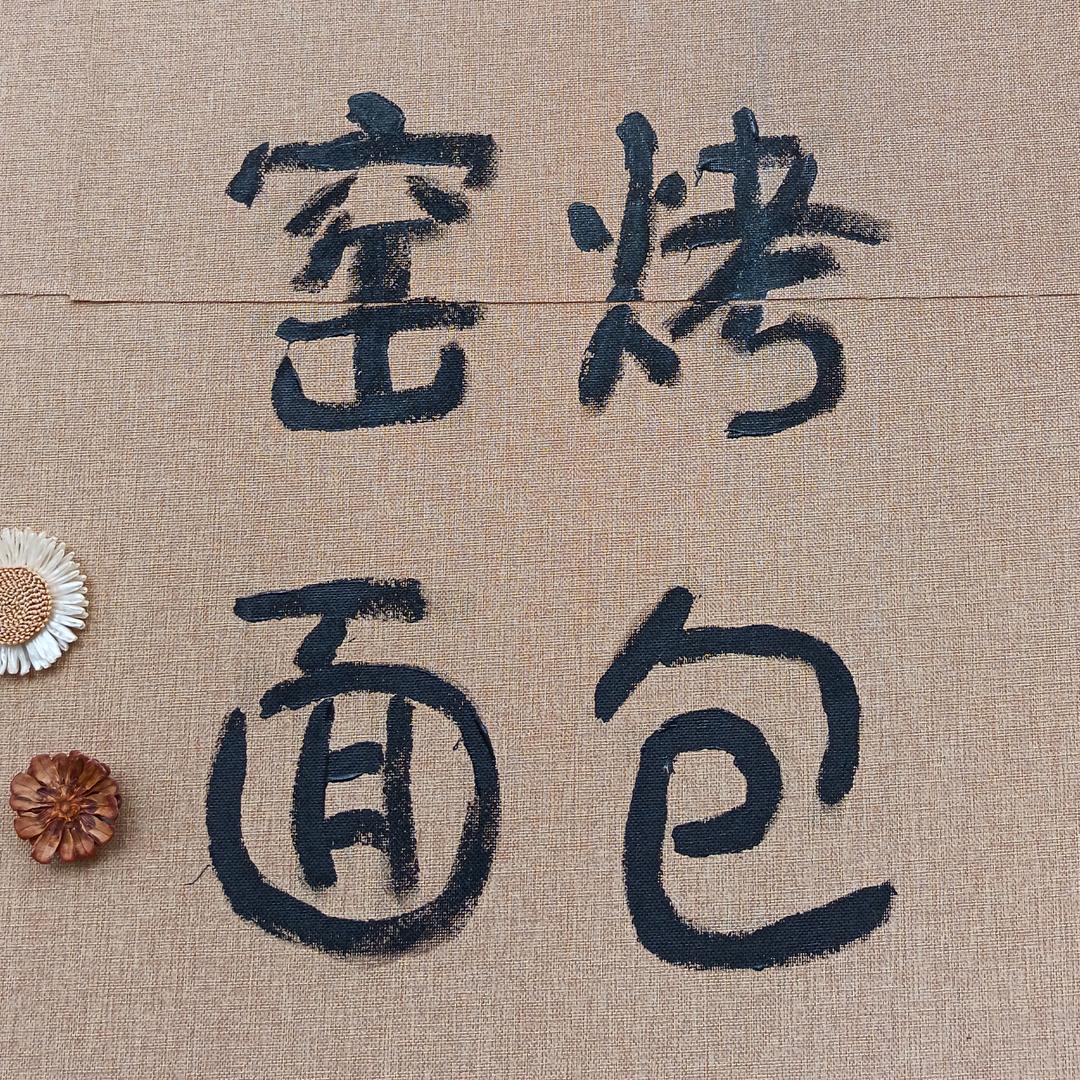 窑烤
面包